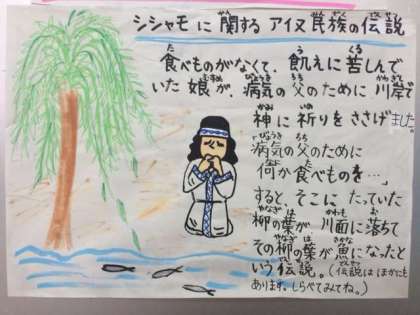 シシャモに関するアイヌ民族の伝説
食べものがなくて、飢えに苦しんで
いた娘が、病気の父のために川岸で
神に祈りをささげました。
「病気の父のために
何か食べものを…」
すると、そこにたっていた
柳の葉が川面に落ちて
その柳の葉が魚になったと
いう伝説。(伝説はほかにも
あります。しらべてみてね。)